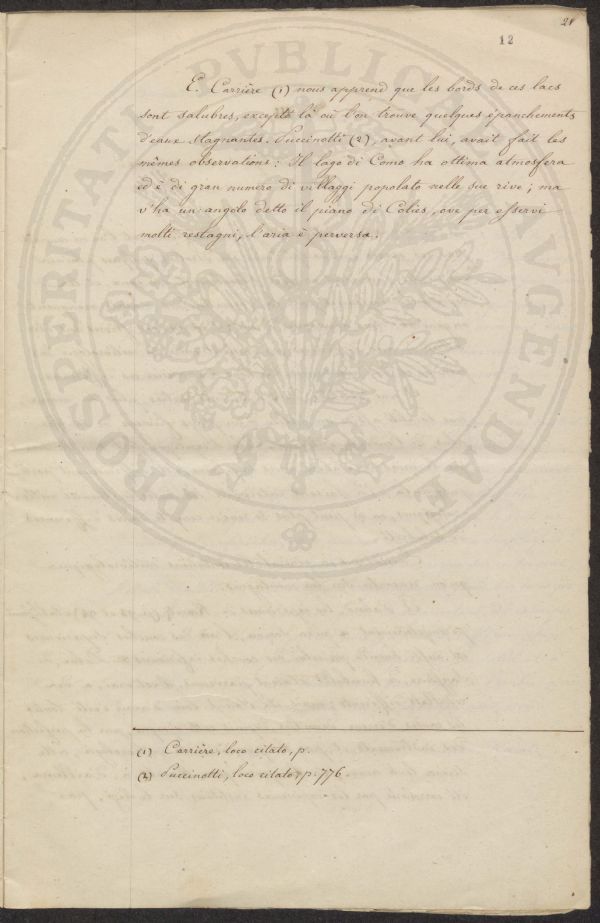 21
12
E. Carrière (1) nous apprend que les bords de ces lacs
sont salubres, excepté là où l'on trouve quelques épanchements
d'eaux stagnantes. Puccinotti (2), avant lui, avait fait les
mêmes observations: Il lago di Como ha ottima atmosfera
ed è di gran numero di villaggi popolato nelle sue rive; ma
v'ha un angolo detto il piano di Colies, ove per esservi
molti restagni, l'aria è perversa.
(1) Carrière, loco citato, p.
(2) Puccinotti, loco citato, p. 776.
PROSPERITATI PVBLICAE AVGENDAE